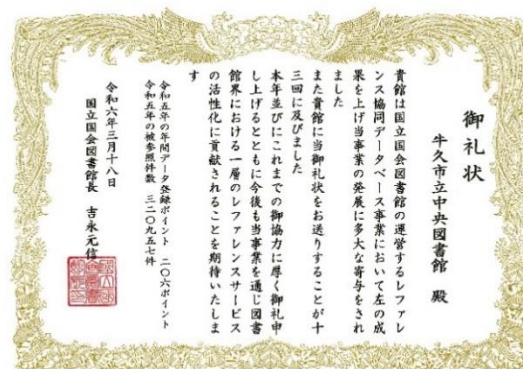 御礼状
牛久市立中央図書館 殿
貴館は国立国会図書館の運営するレファレ
ンス協同データベース事業において左の成
果を上げ当事業の発展に多大な寄与をされ
ました
また貴館に当御礼状をお送りすることが十
三回に及びました
本年並びにこれまでの御協力に厚く御礼申
し上げるとともに今後も当事業を通じ図書
館界における一層のレファレンスサービス
の活性化に貢献されることを期待いたしま
す
令和五年の年間データ登録ポイント 二〇六ポイント
令和五年の被参照件数 三二〇九五七件
令和六年三月十八日
国立国会図書館長 吉永元信